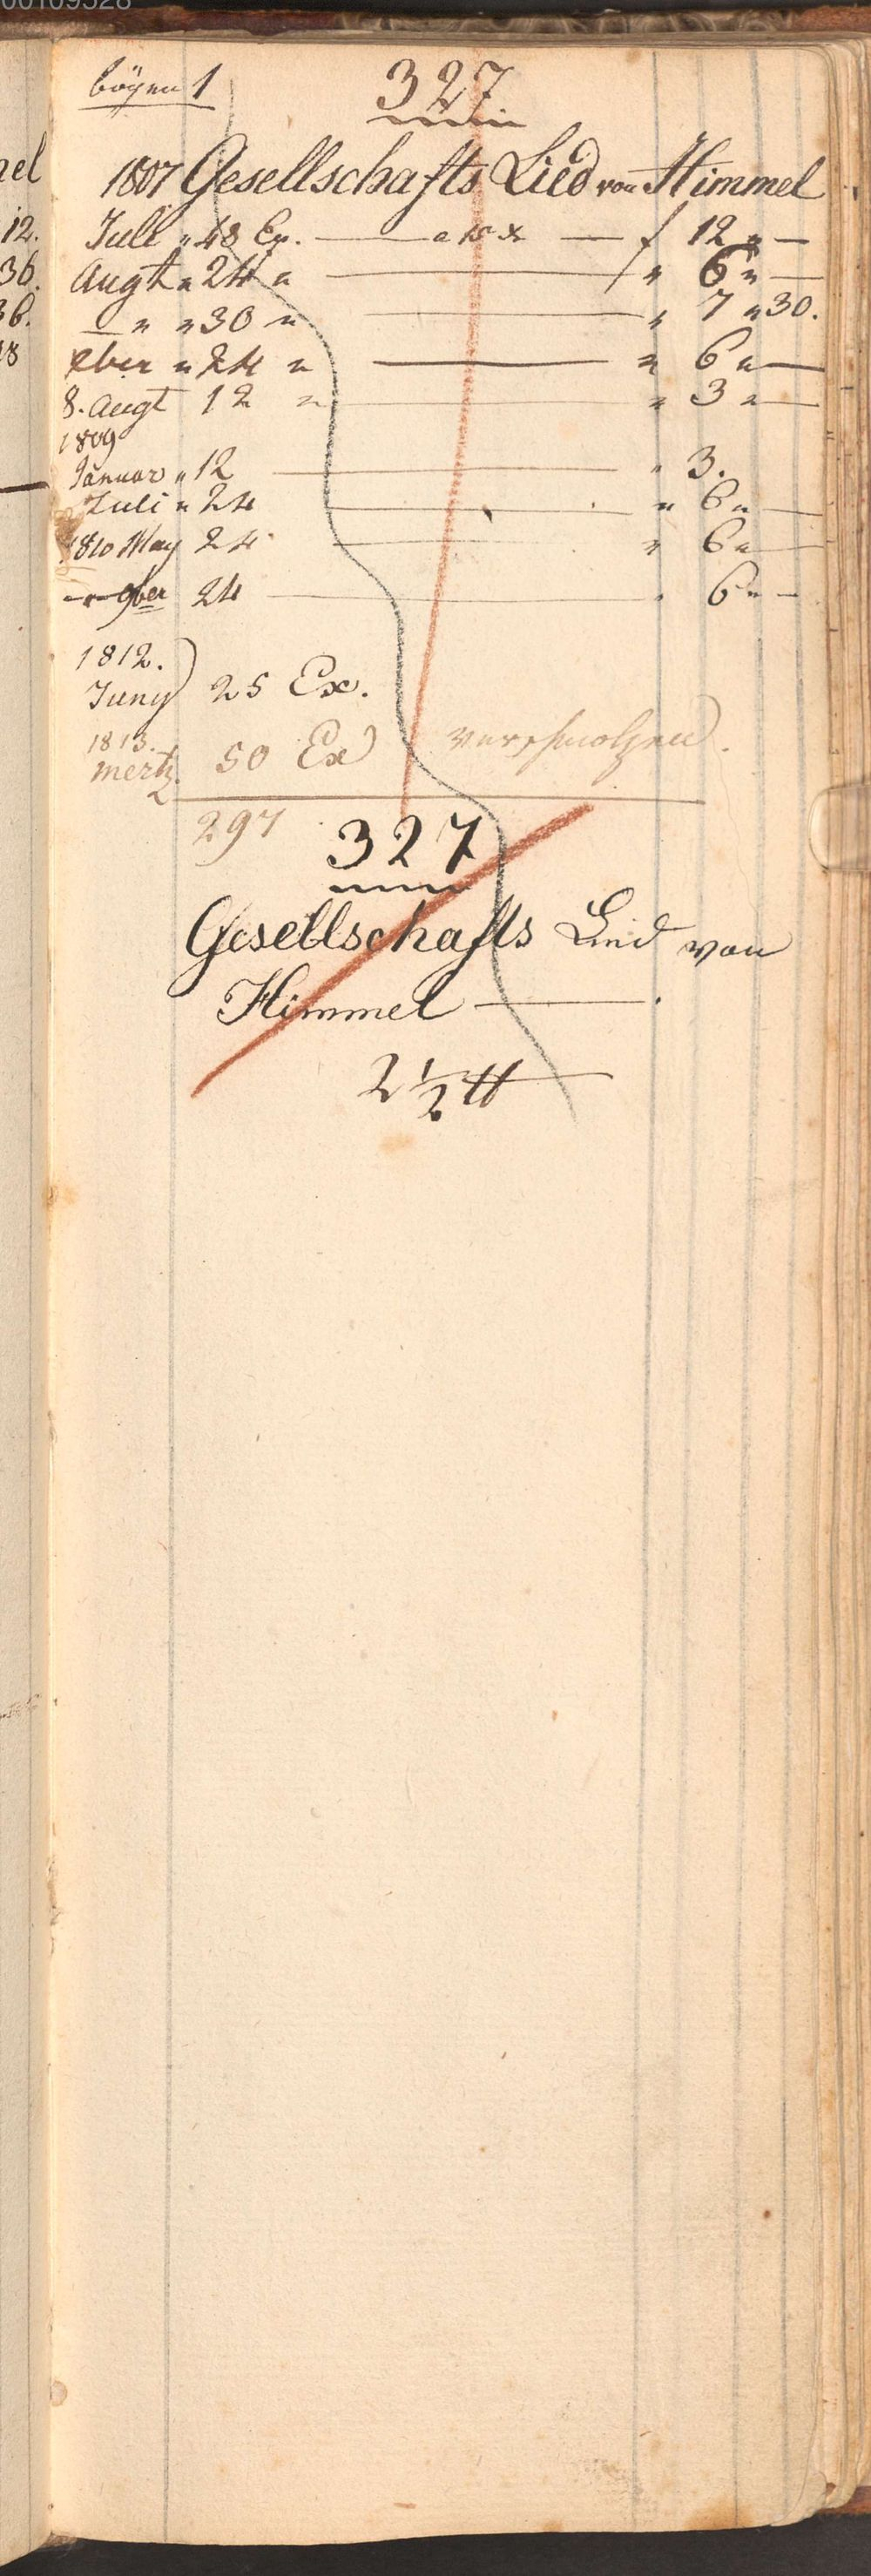 00109528
bögen 1
327
1807 Gesellschafts Lied von Himmel
Juli " 48 Ex. — a 15 x — f 12 " —
Augt " 24 " — " 6 " —
— " " 30 " — " 7 " 30.
" 24 " — " 6 " —
8. Augt 12 " — " 3 " —
1809
Januar " 12 — " 3.
Juli " 24 — " 6 " —
1810 May 24 — " 6 " —
— " 9ber 24 — " 6 " —
1812.
Juny 25 Ex.
1813.
mertz 50 Ex verschmolzen.
297
327
Gesellschafts Lied von
Himmel —.
2 1/2 tt
nel
12.
36.
36.
18